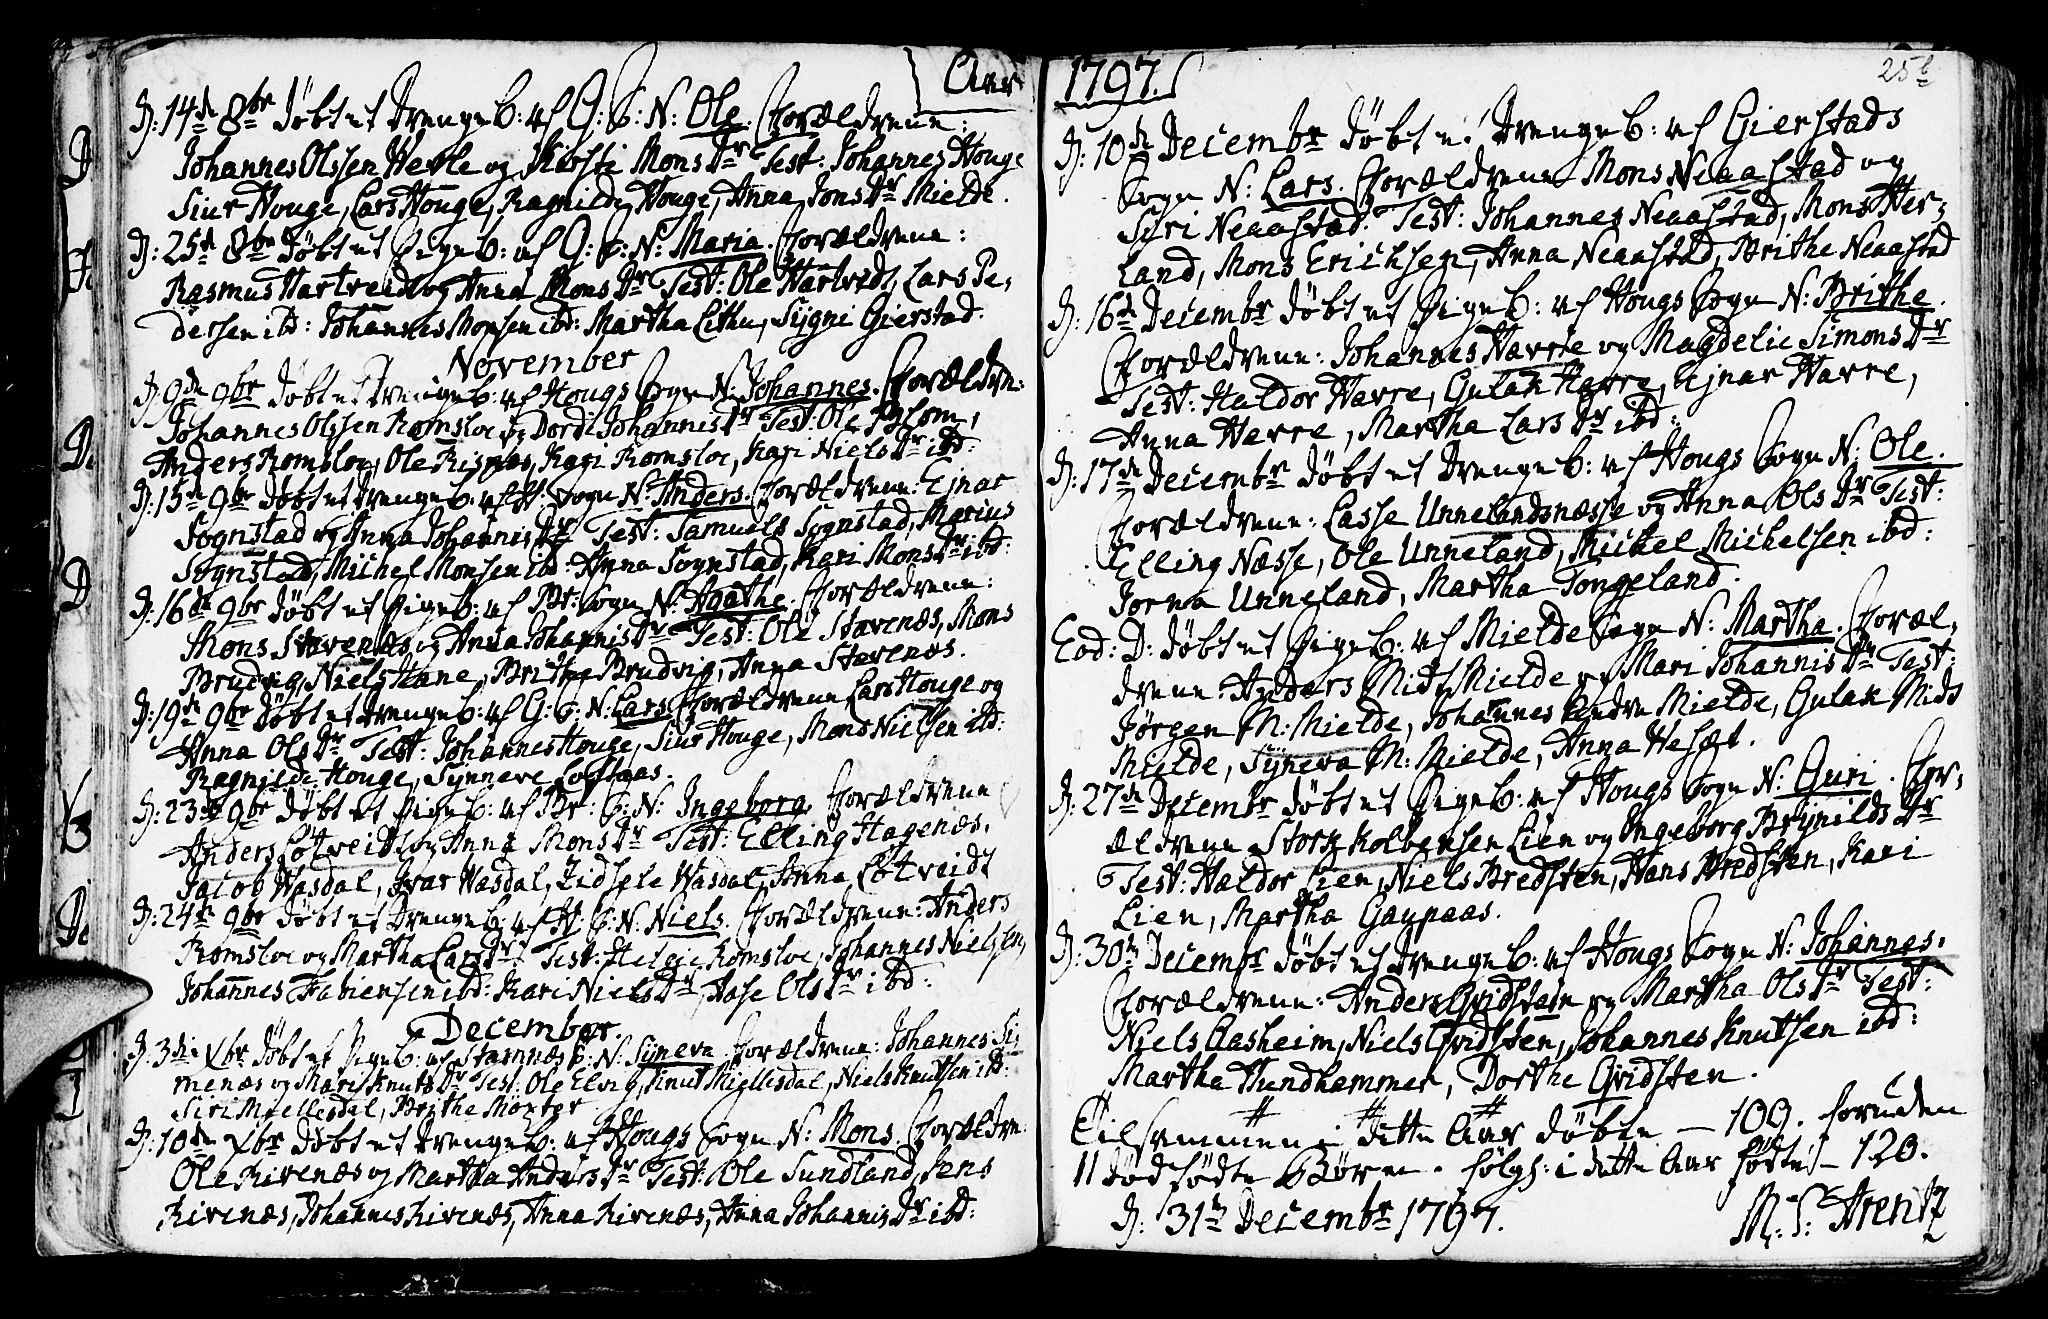 Aar
D: 14de 8br døbt et Drengeb: af G: S: N: Ole. Forældrene:
Johannes Olssen Herle og Kirsti Mons Dr Test: Johannes Houge
Siur Houge, Lars Houge, Ragnilde Houge, Anna Jons Dr Mielde.
D: 25d 8br døbt et Pigeb: af G: S: N: Maria. Forældrene:
Rasmus Hartveid og Anna Mons Dr Test: Ole Hartvedt, Lars Pe,
dersen ibd: Johannes Monsen ibd: Martha Lithu, Sygni Gierstad.
November
D: 9de 9br døbt et Drengeb: af Hougs Sogn N: Johannes. Forældre:
Johannes Olssen Romsloe og Dordi Johannis Dr Test: Ole Blom,
Anders Romsloe, Ole Risnæs, Kari Romsloe, Kari Niels Dr ibd:
D: 15de 9br døbt et Drengeb: af H: Sogn N: Anders. Forældrene: Ejnar
Sognstad og Anna Johannis Dr Test: Samuels Sognstad, Marius
Sognstad, Michel Monsen ibd: Anna Sognstad, Kari Mons Dr ibd:
D: 16de 9br døbt et Pigeb: af Br: Sogn N: Agathe. Forældrene:
Mons Stavenæs og Anna Johannis Dr Test: Ole Stavenæs, Mons
Brudvig, Niels Hane, Brithe Brudvig, Anna Stavenæs.
D: 19de 9br døbt et Drengeb: af G: S: N: Lars Forældrene Lars Houge og
Anna Ols Dr Test: Johannes Houge, Siur Houge, Mons Nielsen ibd:
Ragnilde Houge, Synneve Loftaas.
D: 23de 9br døbt et Pigeb: af Br: S: N: Ingeborg. Forældrene
Anders Løtveidt og Anna Mons Dr Test: Elling Hagenæs,
Jacob Wasdal, Ivar Wasdal, Zidsele Wasdal, Anna Løtveidt
D: 24de 9br døbt et Drengeb: af H: S: N: Niels. Forældrene: Anders
Romsloe og Martha Lars Dr. Test: Helgie Romsloe, Johannes Nielsen,
Johannes Fabiensen ibd: Kari Niels Dr, Aase Ols Dr ibd:
December
D: 3die Xbr døbt et Pigeb: af Stamnæs S: N: Syneva. Forældrene: Johannes Si,
menæs og Mari Knuts Dr Test: Ole Elvig, Knut Miellesdal, Niels Knutsen ibd:
Siri Miellesdal, Brithe Møxter
D: 10de Xbr døbt et Drengeb: af Hougs Sogn N: Mons. Forældre:
Ole Rivenæs og Martha Anders Dr Test: Ole Sundland, Jens
Rivenæs, Johannes Rivenæs, Anna Rivenæs, Anna Johannis Dr ibd:
1797.
25
D: 10de Decembr døbt et Drengeb: af Gierstads
Sogn N: Lars. Forældrene Mons Neaastad og
Syri Neaastad. Test: Johannes Neaastad, Mons Her=
land, Mons Erichsen, Anna Neaastad, Brithe Neaastad
D: 16de Decembr døbt et Pigeb: af Hougs Sogn N: Brithe.
Forældrene: Johannes Havre og Magdelie Simons Dr
Test: Haldor Havre, Gulak Havre, Ejnar Havre,
Anna Havre, Martha Lars Dr ibd:
D: 17de Decembr døbt et Drengeb: af Hougs Sogn N: Ole.
Forældrene: Lasse Unnelandsnæsse og Anna Ols Dr Test:
Elling Næsse, Ole Unneland, Michel Michelsen ibd:
Jorna Unneland, Martha Tongeland.
Eod: D: døbt et Pigeb: af Mielde Sogn N: Martha. Foræl,
drene: Anders Mids Mielde og Mari Johannis Dr Test:
Jørgen M: Mielde, Johannes Endre Mielde, Gulak Mids
Mielde, Syneva M: Mielde, Anna Vesæt.
D: 27de Decembr døbt et Pigeb: af Hougs Sogn N: Guri. For,
ældrene Stork Kolbensen Lien og Ingeborg Brynilds Dr
Test: Haldor Lien, Niels Bredsten, Hans Bredsten, Kari
Lien, Martha Gaupaas.
D: 30te Decembr døbt et Drengeb: af Hougs Sogn N: Johannes.
Forældrene: Anders Gridstein og Martha Ols Dr Test:
Niels Aasheim, Niels Gridsten, Johannes Knutsen ibd:
Martha Hundhammer, Dorthe Gridsten.
Tilsammen i dette Aar døbte — 109. foruden
11 dødfødte Børn. følgs: i dette Aar fødte — 120.
D: 31te Decembr 1797.
M: S: Arentz